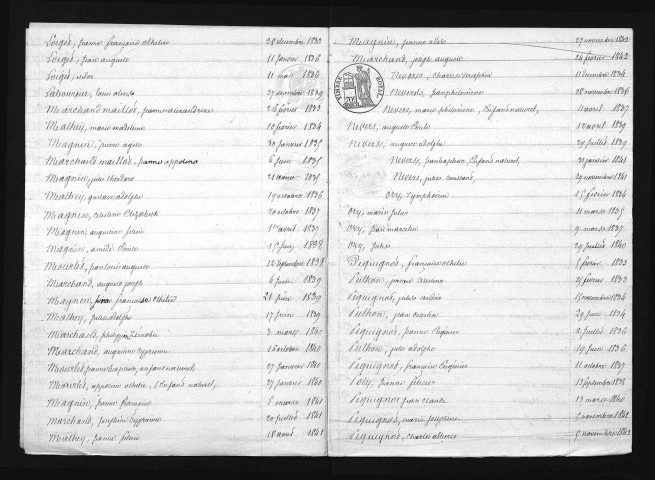 Loigés, jeanne françoise othelie 28 décembre 1833
Loigés, jean auguste 11 janvier 1836
Loigés, sidor 11 mars 1836
Latourneur, louis alexis 27 décembre 1839
Marchand maillot, jeanne alexandrine 26 février 1833
Mathey, marie madeleine 10 février 1834
Magnin, pierre agile 30 janvier 1835
Marchand maillot, jeanne appoline 6 juin 1835
Magnin, jules theodore 1835
Mathey, gustave adolphe 19 octobre 1836
Magnin, celestine Elizabeth 20 octobre 1837
Magnin, augustine felicie 1er avril 1837
Magnin, amédé Emile 15 juin 1838
Mourlot, jean louis auguste 12 septembre 1838
Marchand, auguste joseph 6 juin 1839
Magnin, françoise othilie 21 juin 1839
Mathey, jules adolphe 17 juin 1839
Marchand, philippe Zénobie 3 mars 1840
Marchand, augustine Cyprienne 16 octobre 1840
Mourlot, jeanne baptiste, enfant naturel, 27 janvier 1840
Mourlot, appoline othilie, Enfant naturel, 27 janvier 1840
Magnin, jeanne françoise 8 mars 1841
Marchand, josephine Cyprienne 20 juillet 1841
Mathey, jeanne felicie 18 aout 1841
Magnin, jeanne adele 27 novembre 1842
Marchand, joseph auguste 26 février 1842
TIMBRE ROYAL
Nevers, charles seraphin 11 décembre 1834
Nevers, jean philomène 28 novembre 1836
Nevers, marie philomène, Enfant naturel, 11 avril 1837
Nevers, auguste Emile 12 avril 1839
Nevers, auguste adolphe 29 juillet 1839
Nevers, jean baptiste, Enfant naturel, 31 janvier 1841
Nevers, jules constant, 29 novembre 1841
Ory, Symphorien 15 février 1834
Ory, marie julie 11 mars 1835
Ory, jean marcelin 9 mars 1837
Ory, Jules 25 juillet 1840
Péquignot, françoise othilie 5 février 1833
Puthon, jeanne celestine 21 février 1833
Péquignot, jules 15 novembre 1834
Puthon, jean celestin 29 juin 1834
Péquignot, jeanne Eugénie 2 juillet 1836
Puthon, jules adolphe 19 juin 1836
Péquignot, françoise Eugénie 11 octobre 1837
Poly, jeanne felicie 13 septembre 1838
Péquignot jean claude 13 mars 1840
Péquignot, marie josephine 5 novembre 1842
Péquignot, charles alexis 5 novembre 1842